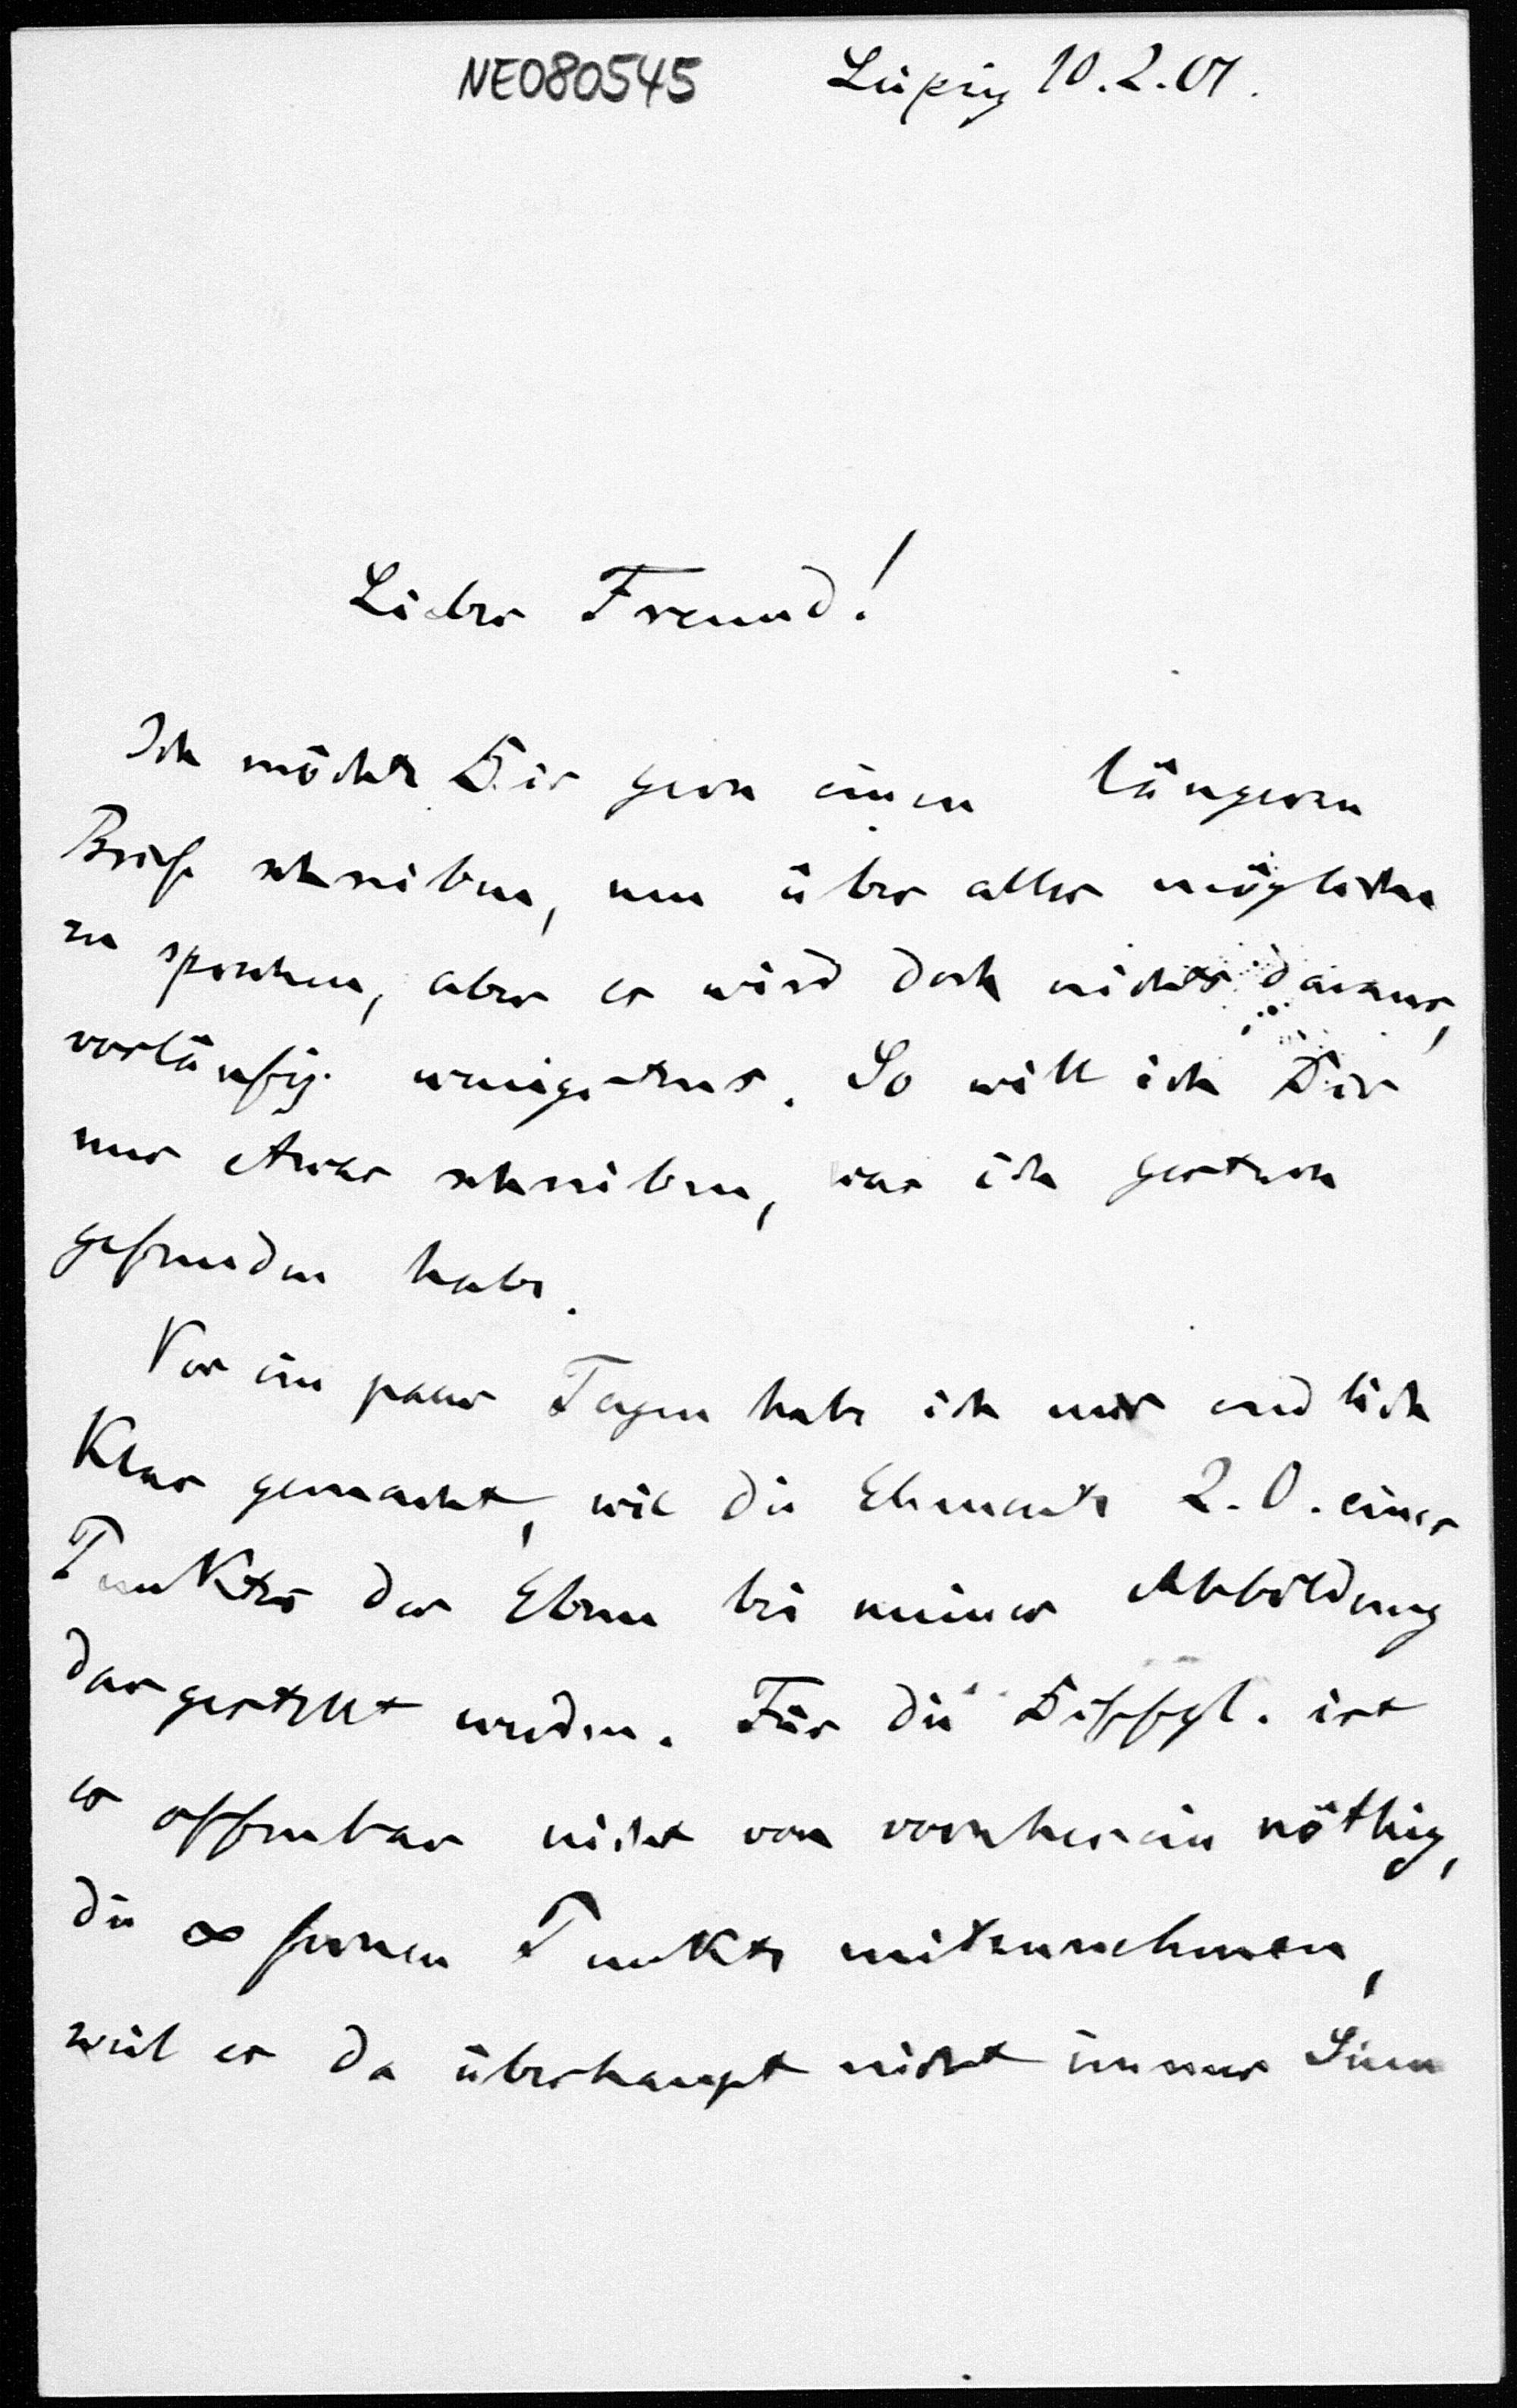 NE080545 Leipzig 10.2.01.
Lieber Freund!
Ich möchte Dir gern einen längeren
Brief schreiben, um über alles mögliche
zu sprechen, aber es wird doch nichts daraus,
vorläufig wenigstens. So will ich Dir
nur etwas schreiben, was ich gestern
gefunden habe.
Vor ein paar Tagen habe ich mir endlich
Klar gemacht, wie die Elemente 2. O. eines
Punktes der Ebene bei meiner Abbildung
dargestellt werden. Für die Diffgl. ist
es offenbar nicht von vornherein nöthig,
die ∞ fernen Punkte mitzunehmen,
weil es da überhaupt nicht immer Sinn